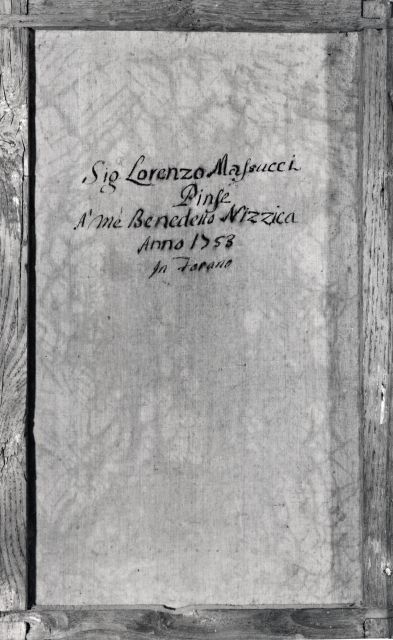 Sig Lorenzo Massucci
Pinse
A' mè Benedetto Nizzica
Anno 1758
In Forano